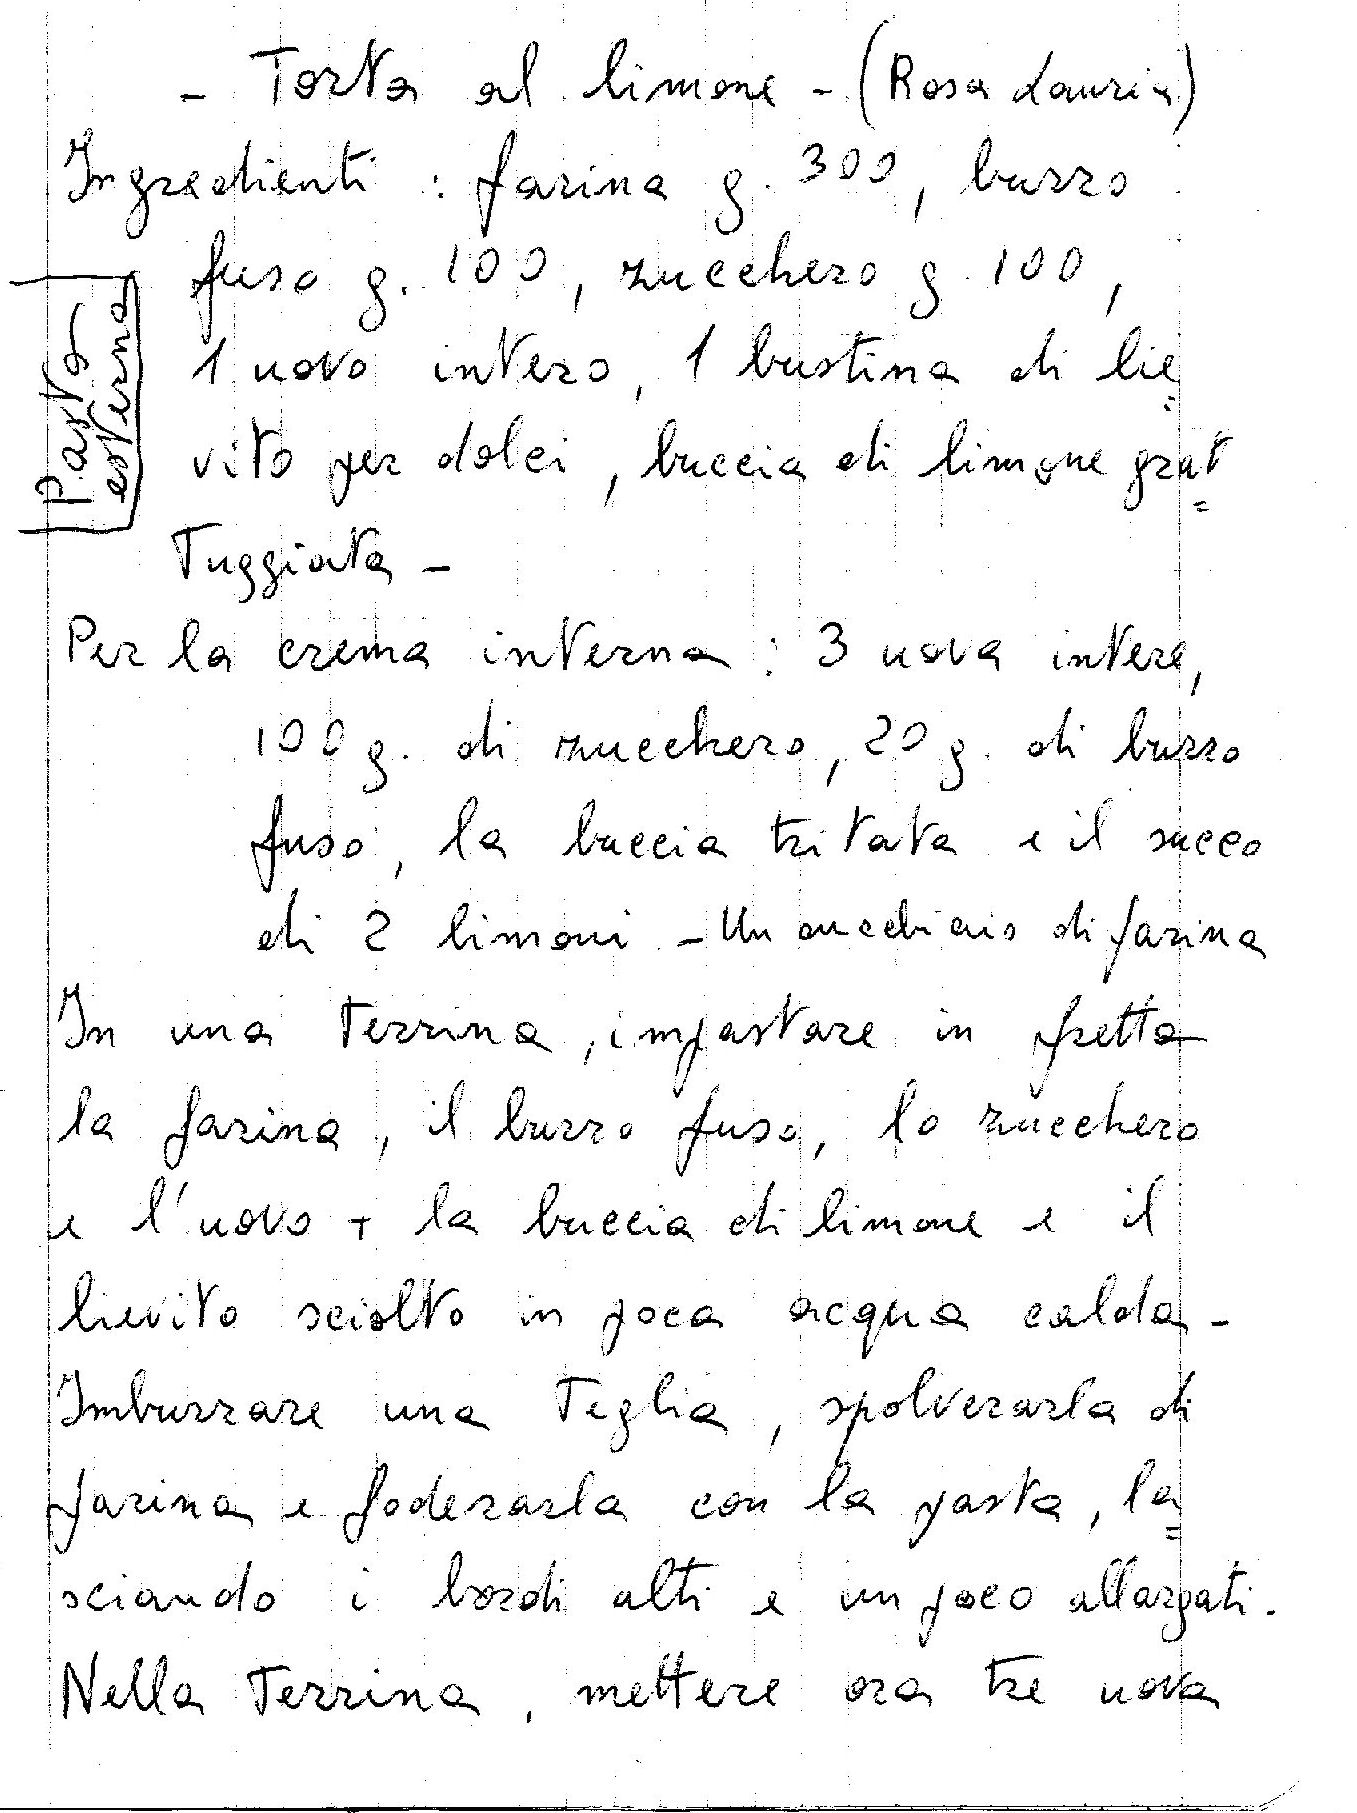 - Torta al limone - (Rosa Lauria)
Ingredienti : farina g. 300, burro
fuso g. 100, zucchero g 100,
1 uovo intero, 1 bustina di lie=
vito per dolci, buccia di limone grat=
Tuggiata -
Pasta
esterna
Per la crema interna : 3 uova intere,
100 g. di zucchero, 20 g. di burro
fuso, la buccia tritata e il succo
di 2 limoni - Un cucchiaio di farina
In una Terrina, impastare in fretta
la farina, il burro fuso, lo zucchero
e l'uovo + la buccia di limone e il
lievito sciolto in poca acqua calda -
Imburrare una Teglia, spolverarla di
farina e foderarla con la pasta, la=
sciando i bordi alti e un poco allargati.
Nella Terrina, mettere ora tre uova